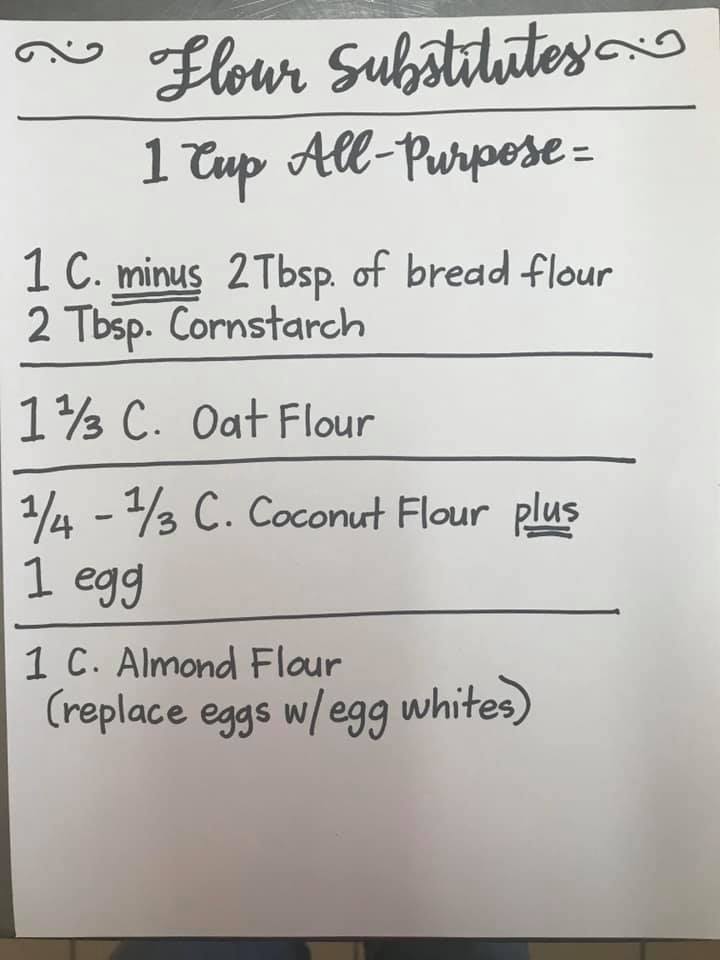 Flour Substitutes
1 Cup All-Purpose =
1 C. minus 2 Tbsp. of bread flour
2 Tbsp. Cornstarch
1 1/3 C. Oat Flour
1/4 - 1/3 C. Coconut Flour plus
1 egg
1 C. Almond Flour
(replace eggs w/egg whites)